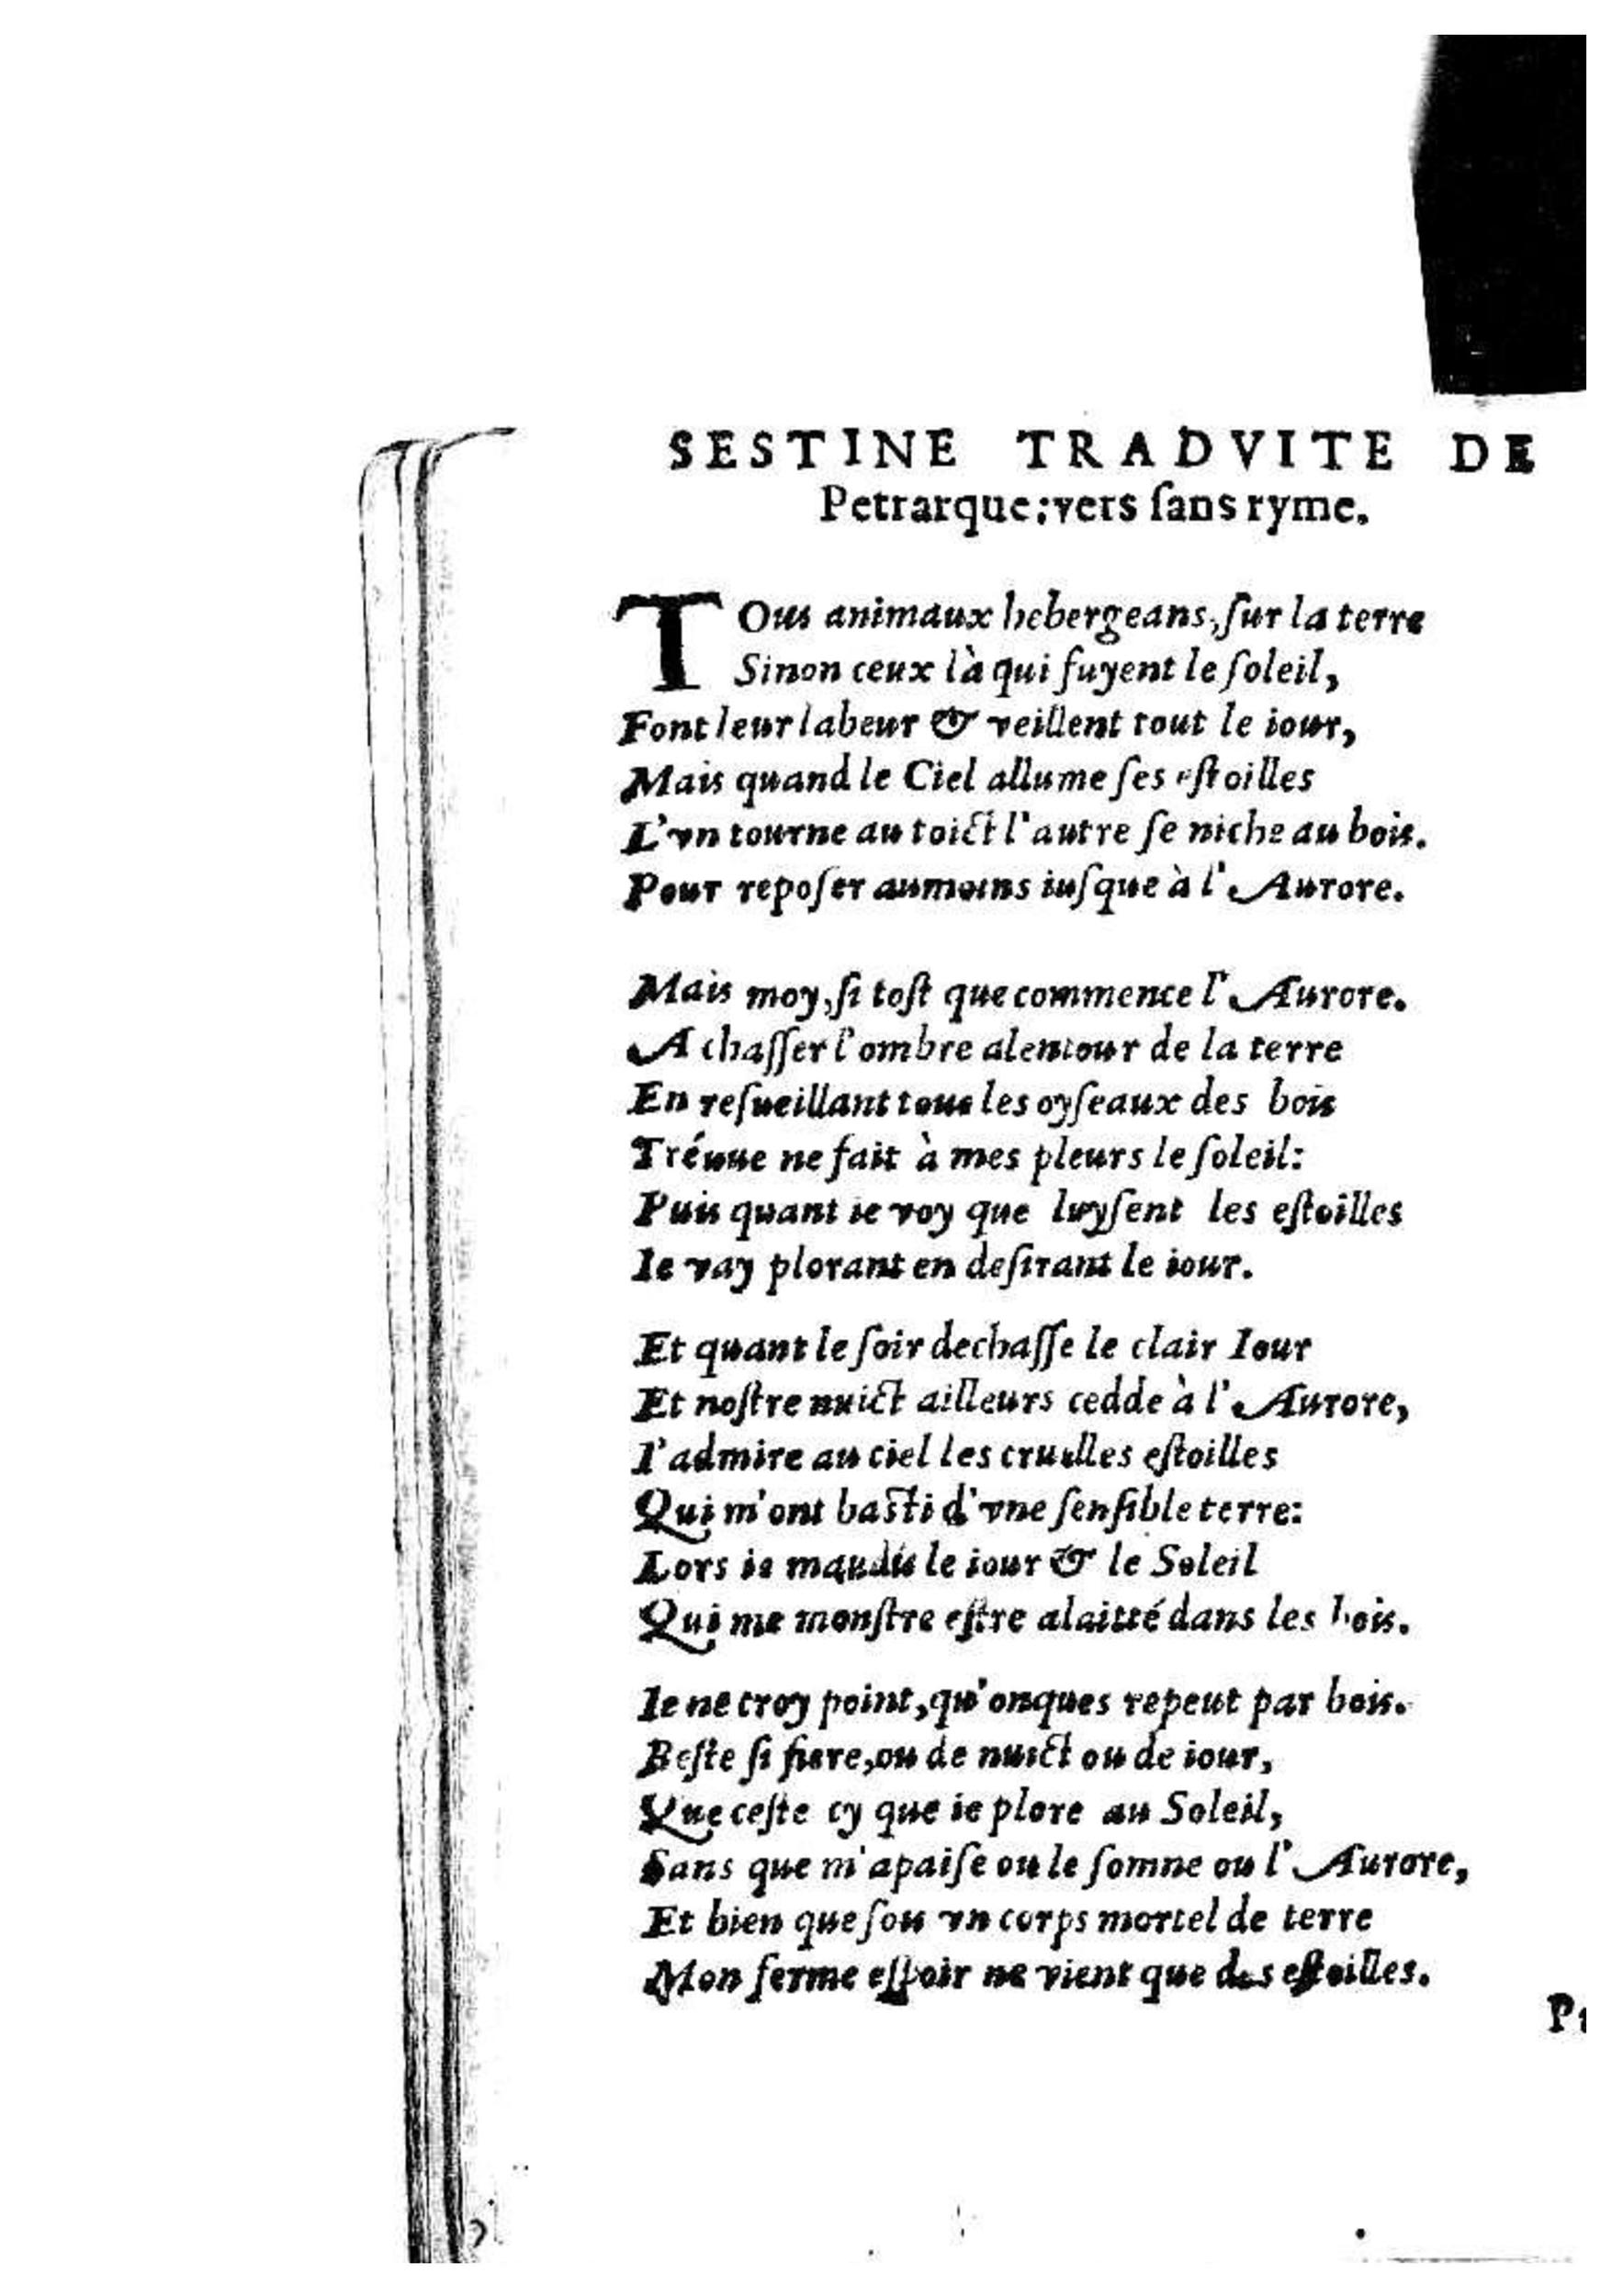 SESTINE TRADVITE DE
Petrarque; vers ſans ryme.
TOus animaux hebergeans, ſur la terre
Sinon ceux là qui fuyent le ſoleil,
Font leur labeur & veillent tout le iour,
Mais quand le Ciel allume ſes eſtoilles
L'vn tourne au toict l'autre ſe niche au bois.
Pour repoſer aumoins iuſque à l'Aurore.
Mais moy, ſi toſt que commence l'Aurore.
A chaſſer l'ombre alentour de la terre
En reſueillant tous les oyſeaux des bois
Tréuue ne fait à mes pleurs le ſoleil:
Puis quant ie voy que luyſent les eſtoilles
Ie vay plorant en deſirant le iour.
Et quant le ſoir dechaſſe le clair Iour
Et noſtre nuict ailleurs cedde à l'Aurore,
I'admire au ciel les cruelles eſtoilles
Qui m'ont baſti d'vne ſenſible terre:
Lors ie maudis le iour & le Soleil
Qui me monſtre eſtre alaitté dans les bois.
Ie ne croy point, qu'onques repeut par bois.
Beſte ſi fiere, ou de nuict ou de iour,
Que ceſte cy que ie plore au Soleil,
Sans que m'apaiſe ou le ſomne ou l'Aurore,
Et bien que ſou vn corps mortel de terre
Mon ferme eſpoir ne vient que des eſtoilles.